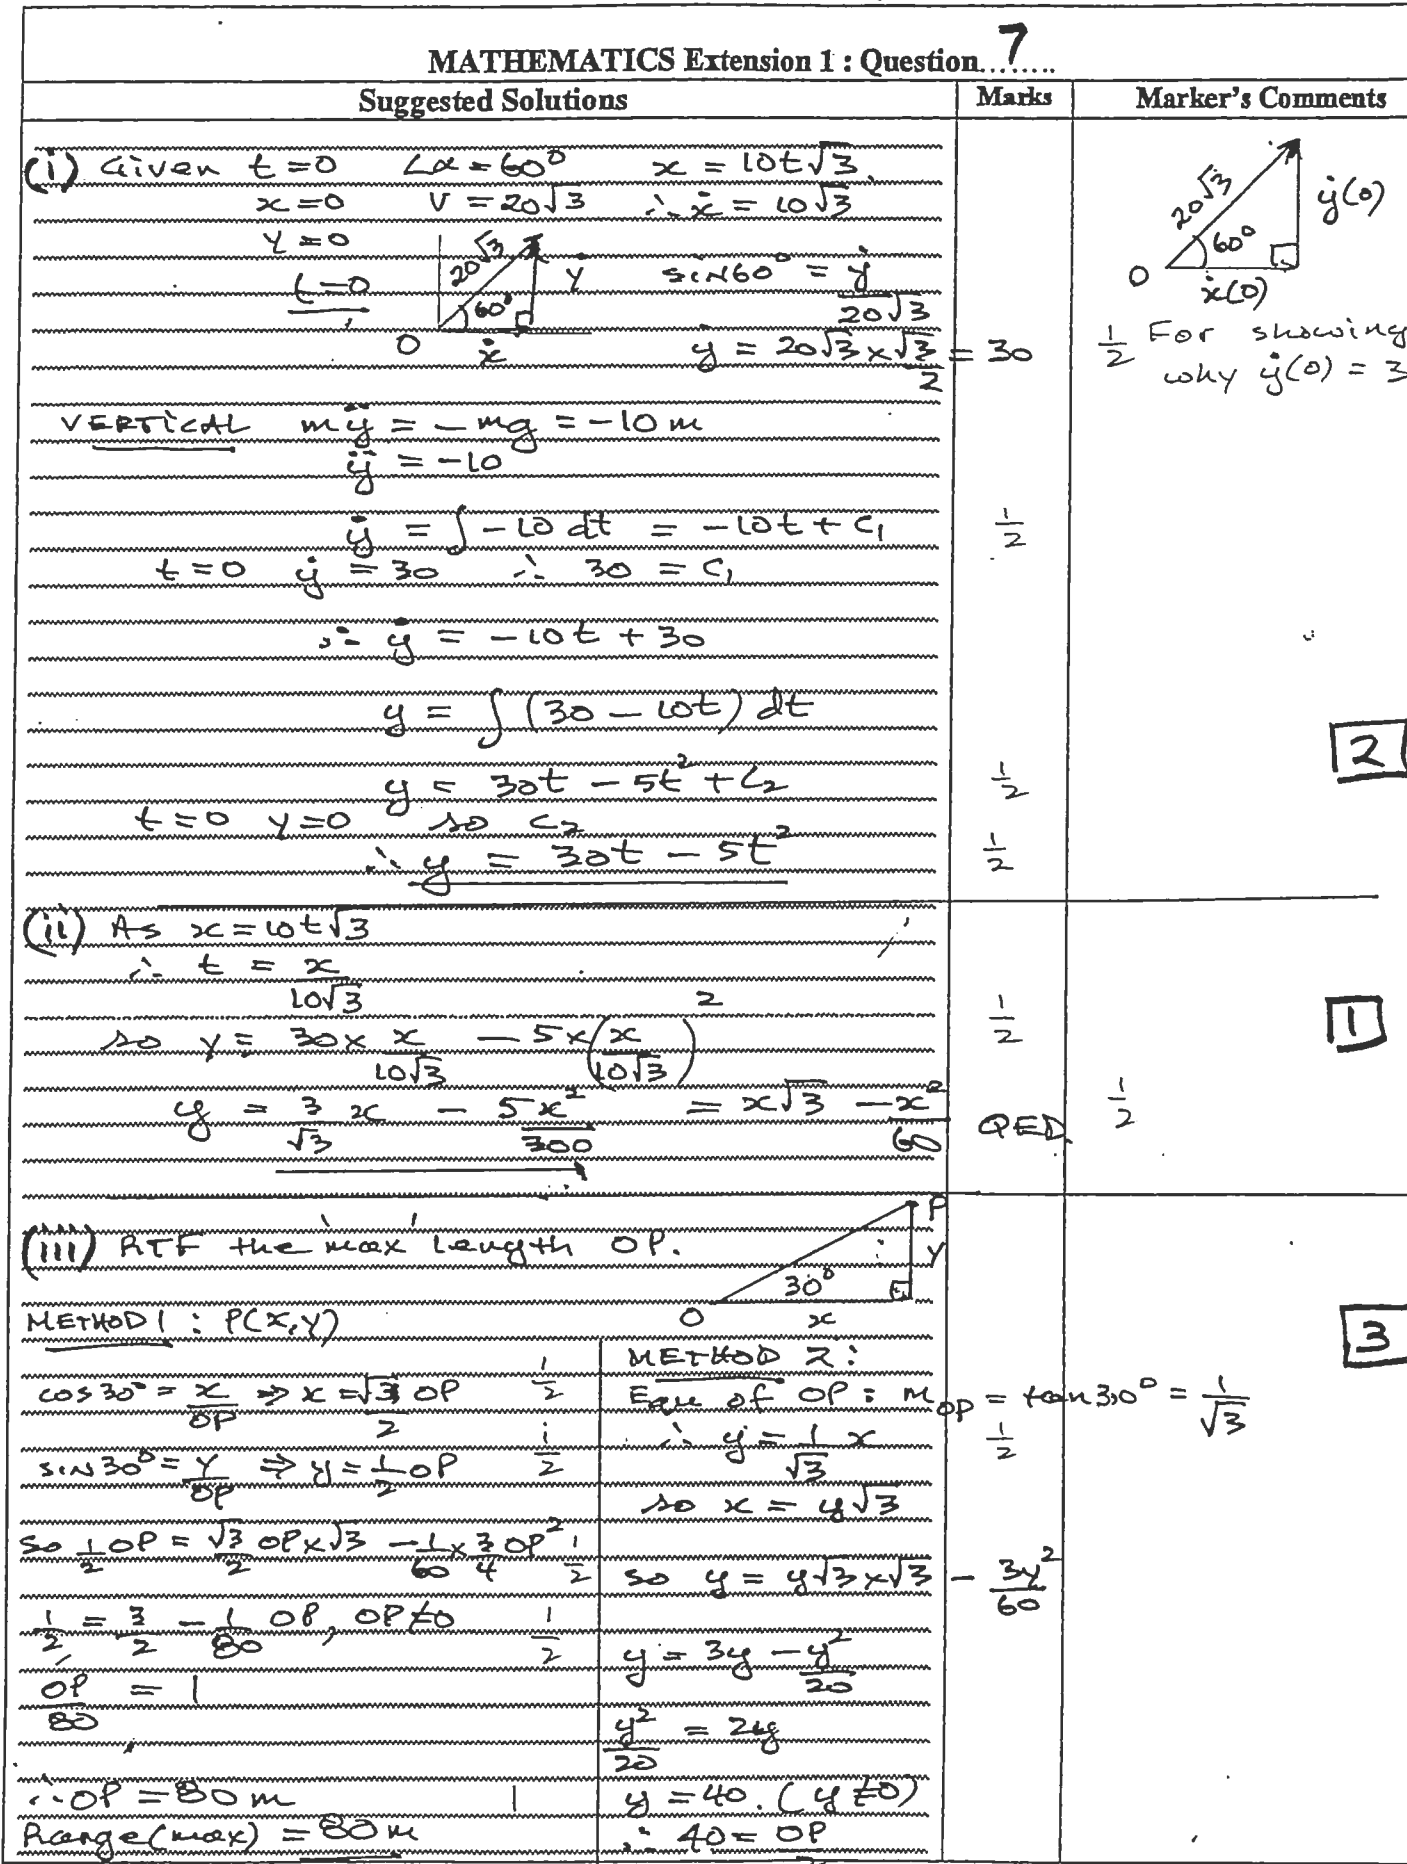 MATHEMATICS Extension 1 : Question...7.....
Suggested Solutions Marks Marker's Comments
(i) Given t=0 ∠α=60° x = 10t√3.
x=0 V=20√3 ∴ ẋ = 10√3
Y=0
t=0
20√3 60° ẏ O ẋ
sin60° = ẏ/20√3
ẏ = 20√3 × √3/2 = 30
20√3 60° ẏ(0) O ẋ(0)
1/2 For showing
why ẏ(0) = 3
VERTICAL mÿ = -mg = -10m
ÿ = -10
ẏ = ∫ -10 dt = -10t + C₁ 1/2
t=0 ẏ = 30 ∴ 30 = C₁
∴ ẏ = -10t + 30
y = ∫ (30 - 10t) dt
2
y = 30t - 5t² + C₂ 1/2
t=0 y=0 so C₂
∴ y = 30t - 5t² 1/2
(ii) As x = 10t√3
∴ t = x/10√3
so y = 30 × x/10√3 - 5 × (x/10√3)² 1/2 1
y = 3/√3 x - 5x²/300 = x√3 - x²/60 QED 1/2
(iii) RTF the max length OP.
P Y 30° O x
3
METHOD 1 : P(x,y)
cos30° = x/OP ⇒ x = √3/2 OP 1/2
sin30° = y/OP ⇒ y = 1/2 OP 1/2
so 1/2 OP = √3/2 OP × √3 - 1/60 × 3/4 OP² 1/2
1/2 = 3/2 - 1/80 OP, OP≠0 1/2
OP/80 = 1
∴ OP = 80 m 1
Range (max) = 80 m
METHOD 2 :
Eqn of OP : m_OP = tan30° = 1/√3
∴ y = 1/√3 x 1/2
so x = y√3
so y = y√3 × √3 - 3y²/60
y = 3y - y²/20
y²/20 = 2y
y = 40. (y≠0)
∴ 40 = OP